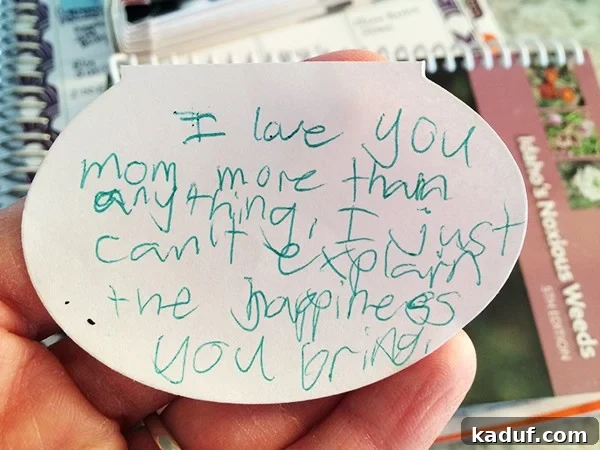 I love you
mom more than
anything, I just
can't explain
the happiness
you bring.
Idaho's Noxious Weeds
5TH EDITION
kaduf.com